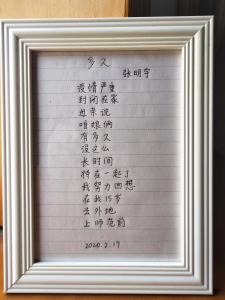 多久
张明宇
疫情严重
封闭在家
母亲说
咱娘俩
有多久
没这么
长时间
待在一起了
我努力回想
在我15岁
去外地
上师范前
2020.2.17